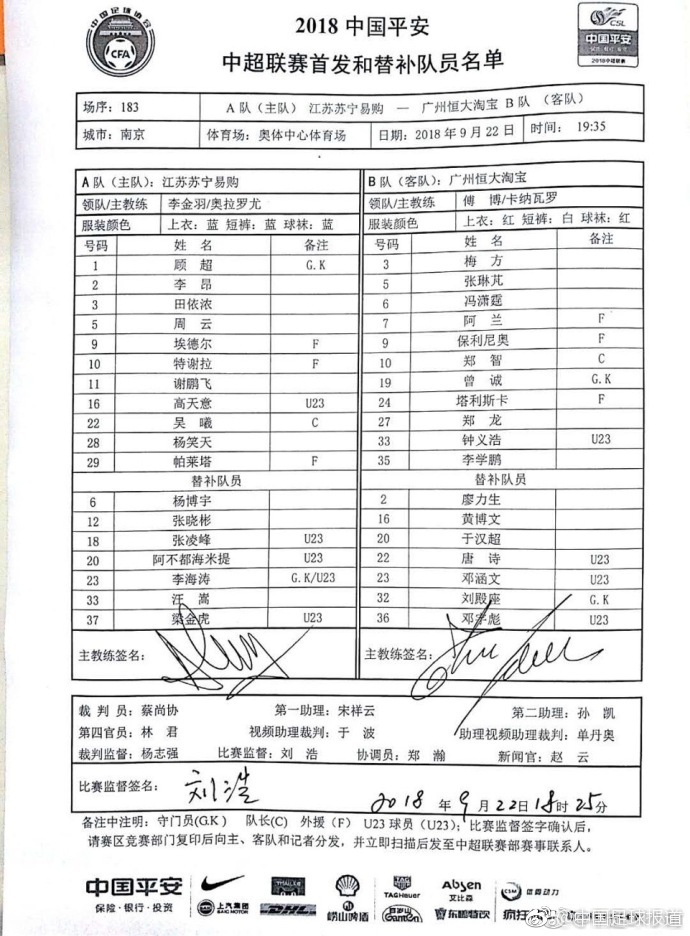 中国足球协会
CFA
2018 中国平安
中超联赛首发和替补队员名单
CSL
中国平安
保险·银行·投资
2018中超联赛
场序：183 A 队（主队） 江苏苏宁易购 — 广州恒大淘宝 B 队 （客队）
城市：南京 体育场：奥体中心体育场 日期：2018 年 9 月 22 日 时间： 19:35
A 队（主队）：江苏苏宁易购 B 队（客队）：广州恒大淘宝
领队/主教练 李金羽/奥拉罗尤 领队/主教练 傅 博/卡纳瓦罗
服装颜色 上衣：蓝 短裤：蓝 球袜：蓝 服装颜色 上衣：红 短裤：白 球袜：红
号码 姓 名 备注 号码 姓 名 备注
1 顾 超 G.K 3 梅 方
2 李 昂 5 张琳芃
3 田依浓 6 冯潇霆
5 周 云 7 阿 兰 F
9 埃德尔 F 9 保利尼奥 F
10 特谢拉 F 10 郑 智 C
11 谢鹏飞 19 曾 诚 G.K
16 高天意 U23 24 塔利斯卡 F
22 吴 曦 C 27 郑 龙
28 杨笑天 33 钟义浩 U23
29 帕莱塔 F 35 李学鹏
替补队员 替补队员
6 杨博宇 2 廖力生
12 张晓彬 16 黄博文
18 张凌峰 U23 20 于汉超
20 阿不都海米提 U23 22 唐 诗 U23
23 李海涛 G.K/U23 23 邓涵文 U23
33 汪 嵩 32 刘殿座 G.K
37 梁金虎 U23 36 邓宇彪 U23
主教练签名： 主教练签名：
裁 判 员：蔡尚协 第一助理：宋祥云 第二助理：孙 凯
第四官员：林 君 视频助理裁判：于 波 助理视频助理裁判：单丹奥
裁判监督：杨志强 比赛监督：刘 浩 协调员：郑 瀚 新闻官：赵 云
比赛监督签名： 刘浩 2018 年 9 月 22 日 18 时 25 分
备注中注明：守门员(G.K) 队长(C) 外援（F） U23 球员（U23）；比赛监督签字确认后，
请赛区竞赛部门复印后向主、客队和记者分发，并立即扫描后发至中超联赛部赛事联系人。
中国平安
保险·银行·投资
上汽集团
SAIC MOTOR
DHL
崂山啤酒
TAG
TAGHeuer
Ganten
Absen
艾比森
东鹏特饮
CSM 体奥动力
疯狂
@中国足球报道